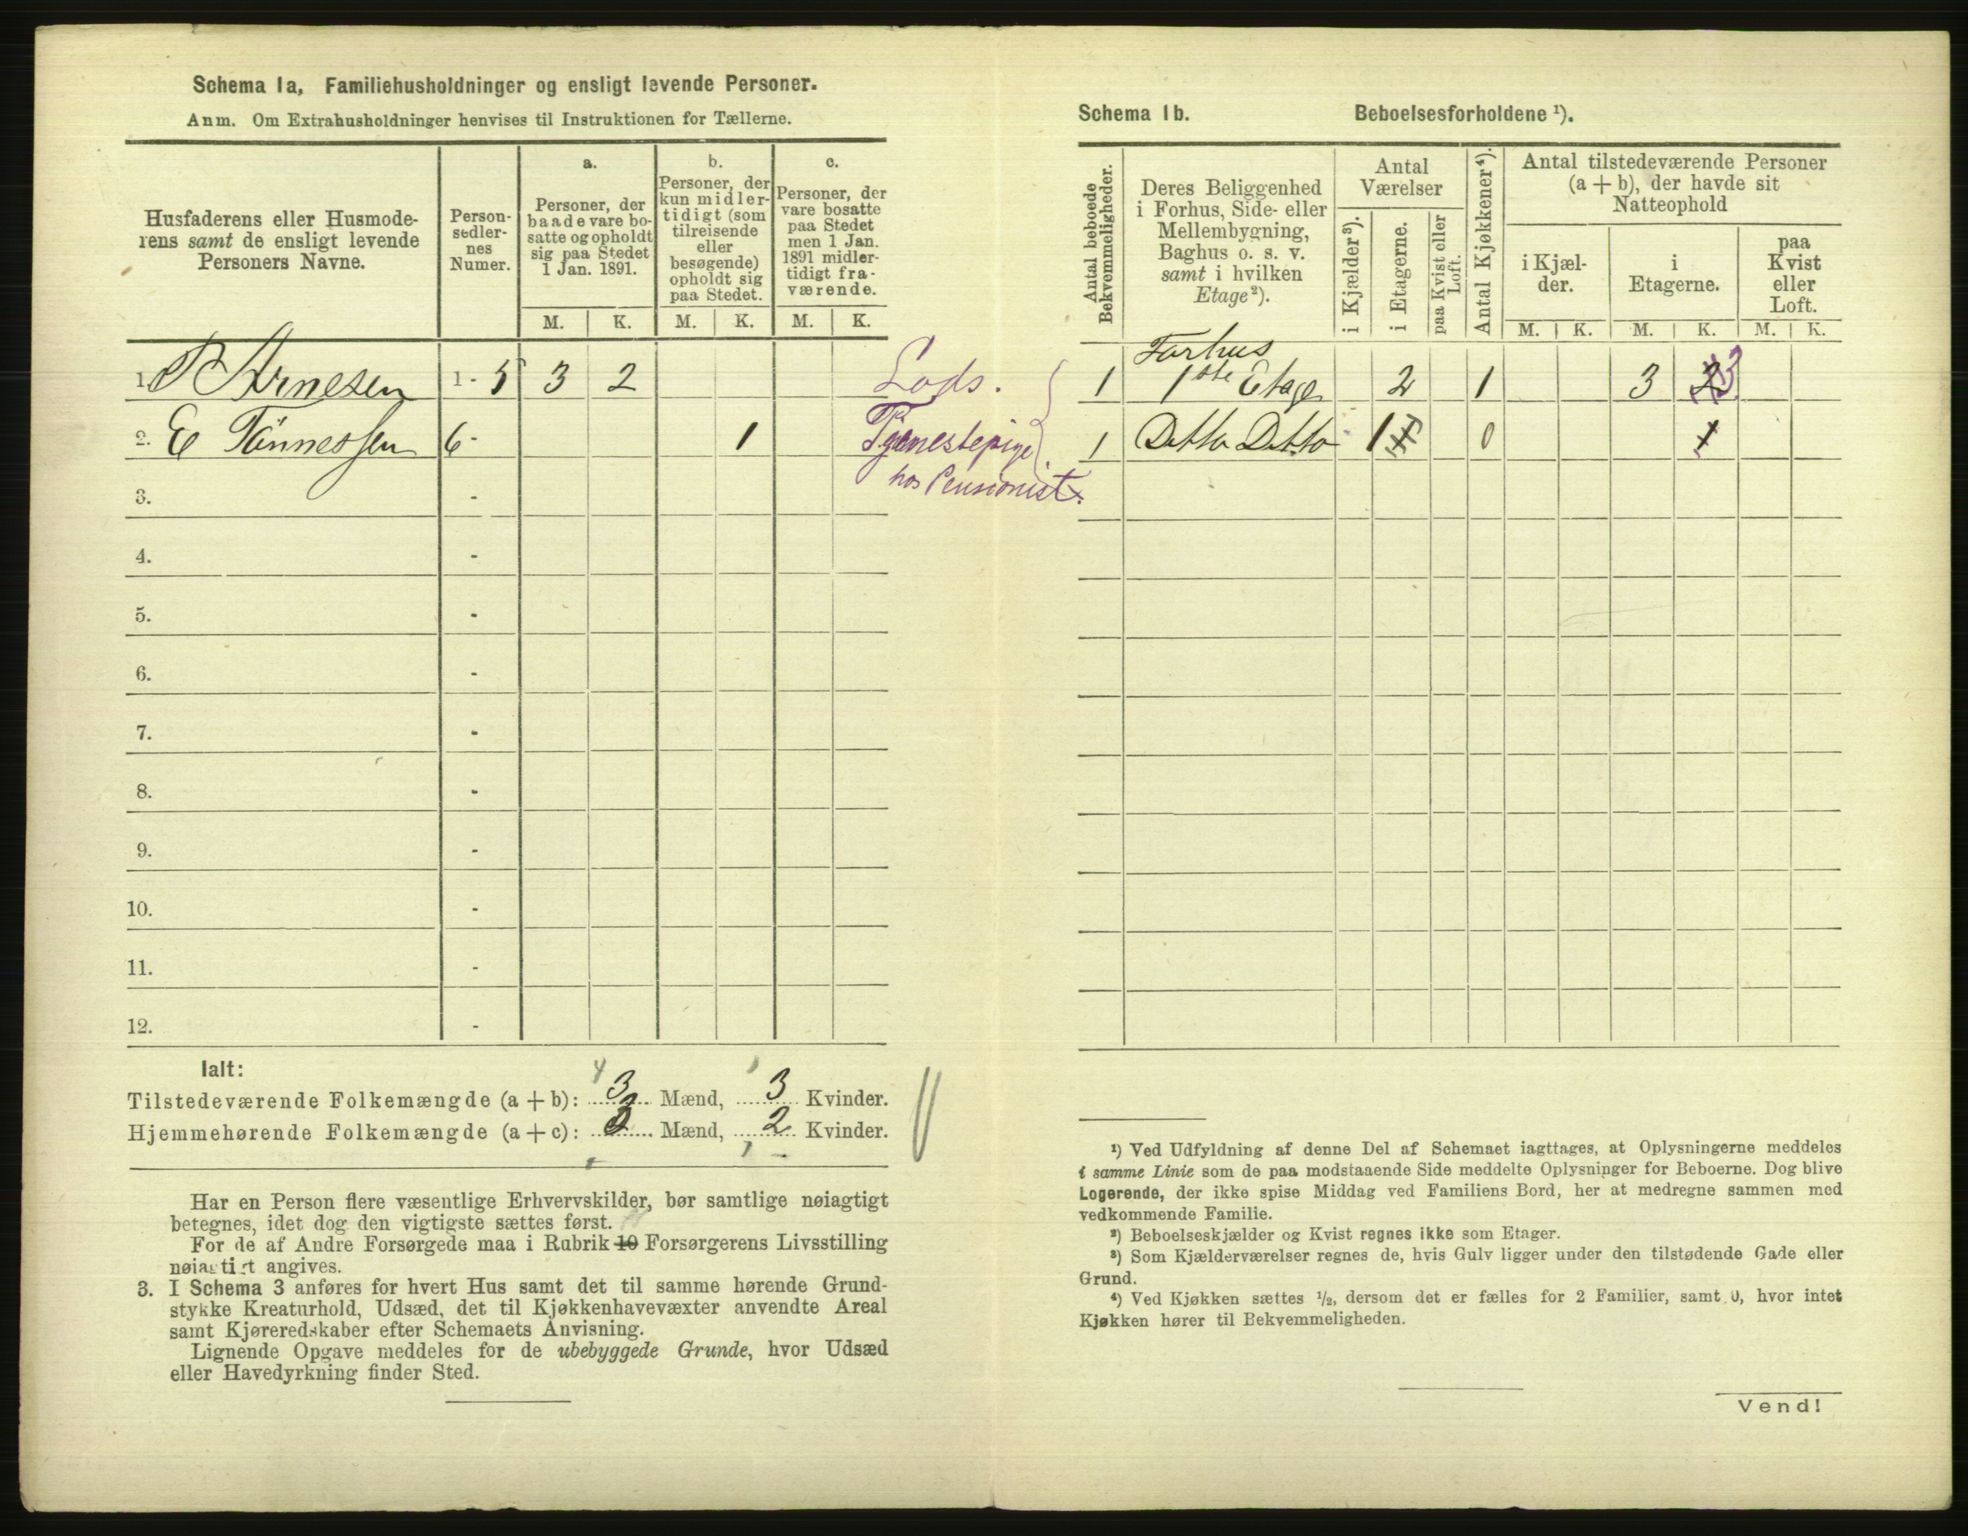 Schema 1a, Familiehusholdninger og ensligt levende Personer.
Anm. Om Extrahusholdninger henvises til Instruktionen for Tællerne.
Husfaderens eller Husmode-
rens samt de ensligt levende
Personers Navne.
Person-
sedler-
nes
Numer.
a.
Personer, der
baade vare bo-
satte og opholdt
sig paa Stedet
1 Jan. 1891.
M. K.
b.
Personer, der
kun midler-
tidigt (som
tilreisende
eller
besøgende)
opholdt sig
paa Stedet.
M. K.
c.
Personer, der
vare bosatte
paa Stedet
men 1 Jan.
1891 midler-
tidigt fra-
værende.
M. K.
1. P Arnesen 1 - 5 3 2 Lods.
2. E Tönnessen 6 - 1 Tjenestepige
hos Pensionist.
3. -
4. -
5. -
6. -
7. -
8. -
9. -
10. -
11. -
12. -
Ialt:
4
Tilstedeværende Folkemængde (a + b): 3 Mænd, 3 Kvinder.
Hjemmehørende Folkemængde (a + c): 3 Mænd, 2 Kvinder.
Har en Person flere væsentlige Erhvervskilder, bør samtlige nøiagtigt
betegnes, idet dog den vigtigste sættes først.
For de af Andre Forsørgede maa i Rubrik 10 Forsørgerens Livsstilling
nøiagtigt angives.
3. I Schema 3 anføres for hvert Hus samt det til samme hørende Grund-
stykke Kreaturhold, Udsæd, det til Kjøkkenhavevæxter anvendte Areal
samt Kjøreredskaber efter Schemaets Anvisning.
Lignende Opgave meddeles for de ubebyggede Grunde, hvor Udsæd
eller Havedyrkning finder Sted.
Schema 1b. Beboelsesforholdene ¹).
Antal beboede
Bekvemmeligheder.
Deres Beliggenhed
i Forhus, Side- eller
Mellembygning,
Baghus o. s. v.
samt i hvilken
Etage²).
Antal
Værelser
i Kjælder³).
i Etagerne.
paa Kvist eller
Loft.
Antal Kjøkkener⁴).
Antal tilstedeværende Personer
(a + b), der havde sit
Natteophold
i Kjæl-
der.
i
Etagerne.
paa
Kvist
eller
Loft.
M. K. M. K. M. K.
Forhus
1 1ste Etage 2 1 3 2 3
1 Ditto Ditto 1 0 1
¹) Ved Udfyldning af denne Del af Schemaet iagttages, at Oplysningerne meddeles
i samme Linie som de paa modstaaende Side meddelte Oplysninger for Beboerne. Dog blive
Logerende, der ikke spise Middag ved Familiens Bord, her at medregne sammen med
vedkommende Familie.
²) Beboelseskjælder og Kvist regnes ikke som Etager.
³) Som Kjælderværelser regnes de, hvis Gulv ligger under den tilstødende Gade eller
Grund.
⁴) Ved Kjøkken sættes ½, dersom det er fælles for 2 Familier, samt 0, hvor intet
Kjøkken hører til Bekvemmeligheden.
Vend!